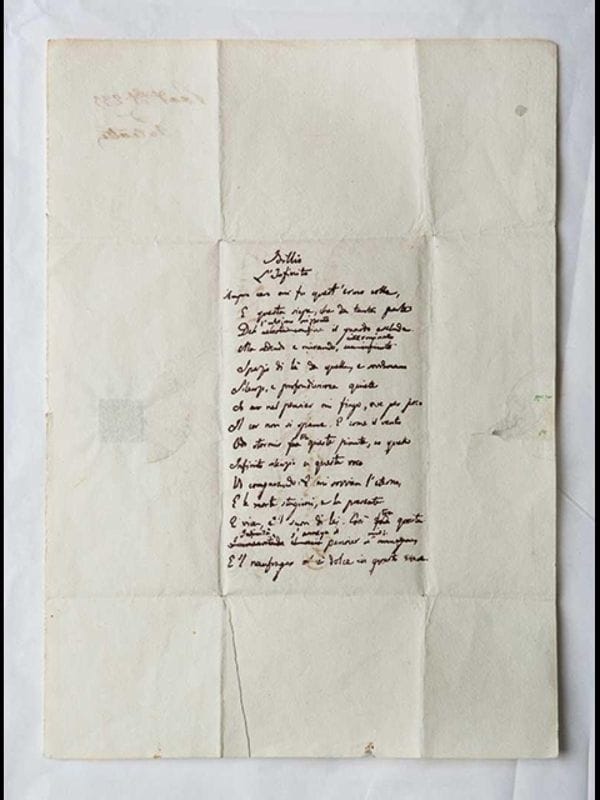 Idillio
L'Infinito
Sempre caro mi fu quest'ermo colle,
E questa siepe, che da tanta parte
l'ultimo orizzonte
Del il guardo esclude.
interminato
Ma sedendo e mirando, un infinito
Spazio di là da quella, e sovrumani
Silenzi, e profondissima quiete
Io nel pensier mi fingo, ove per poco
Il cor non si spaura. E come il vento
Odo stormir fra queste piante, io quello
Infinito silenzio a questa voce
Vo comparando: E mi sovvien l'eterno,
E le morte stagioni, e la presente
E viva, e 'l suon di lei. Così fra questa
Infinità s'annega il
Immensitade pensier
E 'l naufragar m'è dolce in questo mare